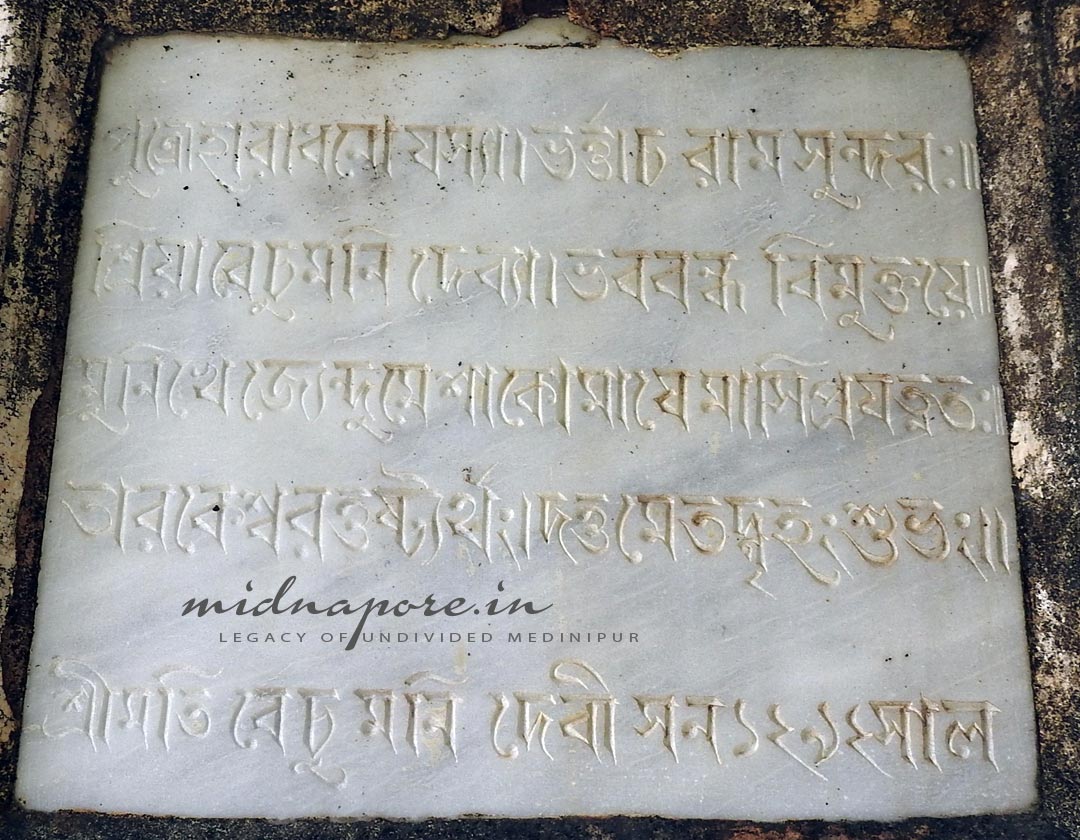 পুত্রোহারাধনো যস্যা।ভর্ত্তাচ রাম সুন্দর:॥
প্রিয়া বেচুমনি দেব্যা।ভববন্ধ বিমুক্তয়ে॥
মুনিখে জ্যেন্দুমে শাকো মাঘে মাসিপ্রযত্নতঃ॥
তারকেশ্বরতুষ্ট্যর্থং।দত্ত মেতদ্গৃহং শুভং॥
midnapore.in
LEGACY OF UNDIVIDED MEDINIPUR
শ্রীমতি বেচু মনি দেবী সন ১২৯২সাল